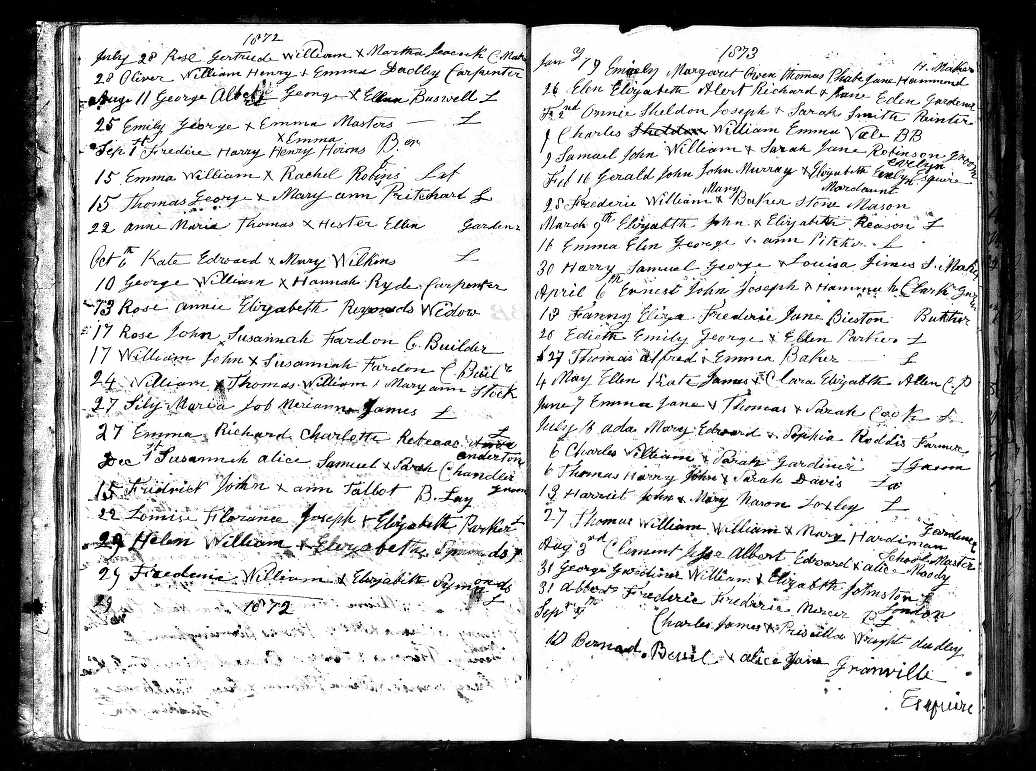 1872
July 28 Rose Gertrude William & Martha Leacock C Make
28 Oliver William Henry & Emma Dadley Carpenter
Aug 11 George Albert George & Ellen Buswell L
25 Emily George & Emma Masters — L
& Emma
Sep 1st Fredire Harry Henry Hirons B
15 Emma William & Rachel Robins Lab
15 Thomas George & Mary ann Pritchard L
22 anne Maria Thomas & Hester Ellin Gardener
Oct 6th Kate Edward & Mary Wilkins L
10 George William & Hannah Ryde Carpenter
13 Rose annie Elizabeth Reynods Widow
17 Rose John Susannah Fardon C Builder
17 William John & Susannah Furdon C Buil
24 William & Thomas William Mary ann Stock
27 Lily Maria Job Merianne James L
27 Emma Richard Charlotte Rebecca L
anderton
Dec 1 Susannah alice Samuel & Sarah Chandler
groom
15 Fredrick John & ann Talbot B Lay
22 Louise Florance Joseph & Elizabeth Parker L
29 Helen William & Elizabeth Symonds
29 Frederic William & Elizabeth Symonds
L
29 1872
1873
H Maker
Jany 19 Emiely Margaret Owen Thomas Jane Hammond
26 Elen Elizabeth Alert Richard & Jane Eden Gardener
Feb 2nd Onnie Sheldon Joseph & Sarah Smith Painter
1 Charles Sheldon William Emma Vale BB
9 Samuel John William & Sarah Jane Robinson Groom
Evelyn
Feb 16 Gerald John John Murray & Elizabeth Evelyn Esquire
Mary Mordaunt
28 Frederic William & Baker Stone Mason
March 9th Elizabeth John & Elizabeth Reason L
16 Emma Elen George & ann Pitcher L
30 Harry Samuel George & Louisa Jimes S. Make
April 6th Ernest John Joseph & Hannah Clark
13 Fanny Eliza Frederic Jane Bieston Buthur
20 Edieth Emily George & Ellen Parties L
27 Thomas alfred & Emma Baker — L
4 May Ellen Kate James & Clara Elizabeth Allen C P
June 7 Emma Jane & Thomas & Sarah Cook L
July 13 ada Mary Edward & Sophia Roddis Farmer
6 Charles William & Sarah Gardiner L
6 Thomas Harry John & Sarah Davis La
13 Harriet John & Mary Nason Loxley L
27 Thomas William William & Mary Hardiman Gardener
School Master
Aug 3rd Clement Jesse Albert Edward & alice Moody
31 George Gardiner William & Elizabeth Johnston L
31 Albert Frederic Frederic Mercer London
Sept
Charles James & Priscilla Wright dudley
10 Bernad Bessil & alice Jane Granville
Esquire